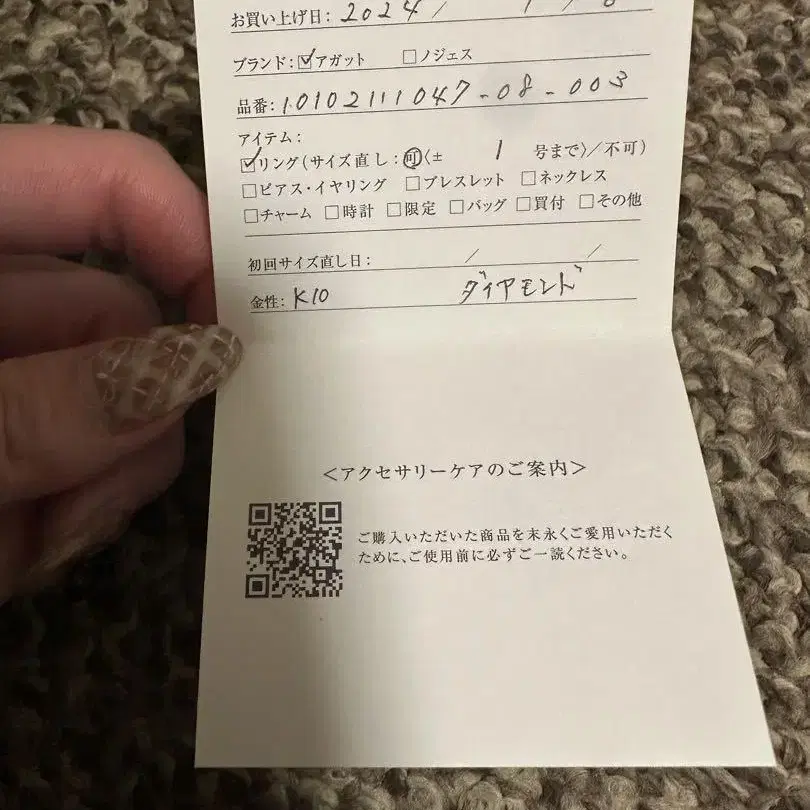 お買い上げ日: 2024/ 1 / 8
ブランド: ☑アガット □ノジェス
品番: 10102111047-08-003
アイテム:
☑リング(サイズ直し:可〈± 1 号まで〉/不可)
□ピアス・イヤリング □ブレスレット □ネックレス
□チャーム □時計 □限定 □バッグ □買付 □その他
初回サイズ直し日: / /
金性: K10 ダイヤモンド
<アクセサリーケアのご案内>
ご購入いただいた商品を末永くご愛用いただく
ために、ご使用前に必ずご一読ください。